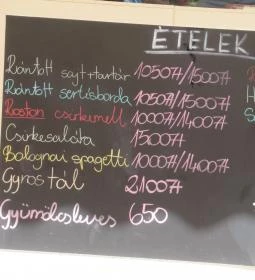 ÉTELEK
Rántott sajt+tartár 1050Ft/1500Ft
Rántott sertésborda 1050Ft/1500Ft
Roston csirkemell 1000Ft/1400Ft
Csirkesaláta 1500Ft
Bolognai spagetti 1000Ft/1400Ft
Gyrostál 2100Ft
Gyümölcsleves 650